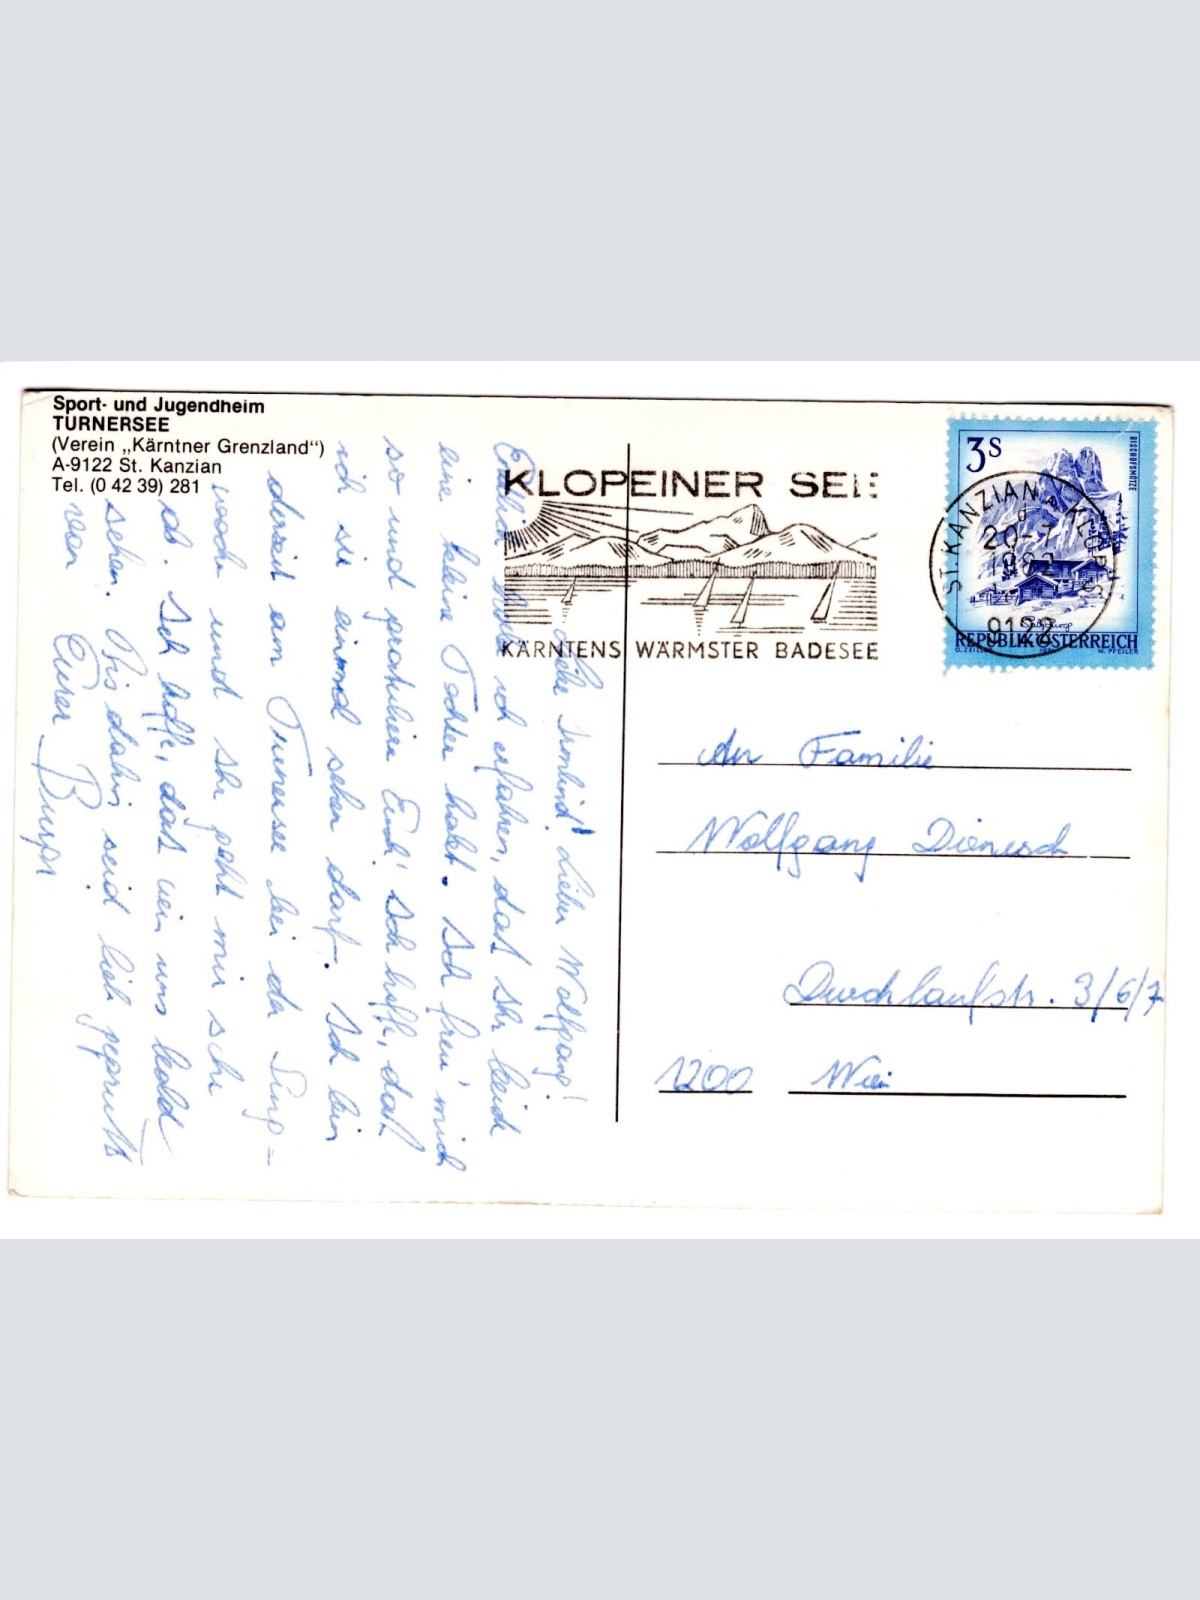 Sport- und Jugendheim
TURNERSEE
(Verein „Kärntner Grenzland")
A-9122 St. Kanzian
Tel. (0 42 39) 281
KLOPEINER SEE
KÄRNTENS WÄRMSTER BADESEE
3S
BISCHOFSMÜTZE
Salzburg
REPUBLIK ÖSTERREICH
O. ZEILLER
W. PFEILER
ST. KANZIAN A. KLOPEINER S
20.-7
1982
9122
Lieber Wolfgang!
ich erfahren, daß Ihr beide
eine kleine Tochter habt. Ich freu' mich
so und gratuliere Euch! Ich hoffe, daß
ich sie einmal sehen darf. Ich bin
derzeit am Turnersee bei der Sing-
woche und Ihr geht mir sehr
ab. Ich hoffe, daß wir uns bald
sehen. Bis dahin seid lieb gegrüßt
von Eurer
An Familie
Wolfgang Dienesch
Durchlaufstr. 3/6/7
1200 Wien